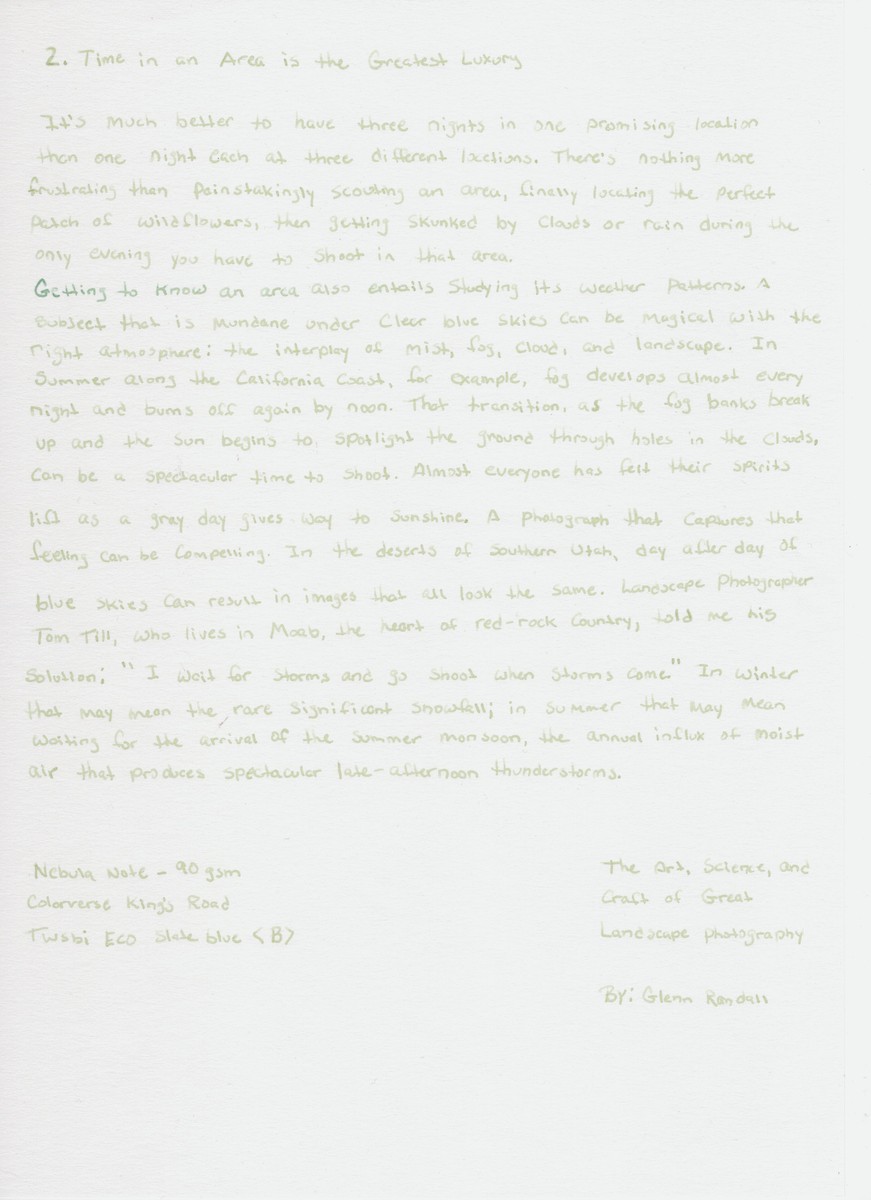 2. Time in an Area is the Greatest Luxury
It's much better to have three nights in one promising location
than one night each at three different locations. There's nothing more
frustrating than painstakingly scouting an area, finally locating the perfect
patch of wildflowers, then getting skunked by clouds or rain during the
only evening you have to shoot in that area.
Getting to know an area also entails studying its weather patterns. A
subject that is mundane under clear blue skies can be magical with the
right atmosphere: the interplay of mist, fog, cloud, and landscape. In
Summer along the California Coast, for example, fog develops almost every
night and burns off again by noon. That transition, as the fog banks break
up and the sun begins to spotlight the ground through holes in the clouds,
can be a spectacular time to shoot. Almost everyone has felt their spirits
lift as a gray day gives way to sunshine. A photograph that captures that
feeling can be compelling. In the deserts of southern Utah, day after day of
blue skies can result in images that all look the same. Landscape Photographer
Tom Till, who lives in Moab, the heart of red-rock country, told me his
solution: "I wait for storms and go shoot when storms come." In winter
that may mean the rare significant snowfall; in summer that may mean
waiting for the arrival of the summer monsoon, the annual influx of moist
air that produces spectacular late-afternoon thunderstorms.
Nebula Note - 90 gsm
Colorverse King's Road
Twsbi Eco Slate blue <B>
The Art, Science, and
Craft of Great
Landscape Photography
By: Glenn Randall